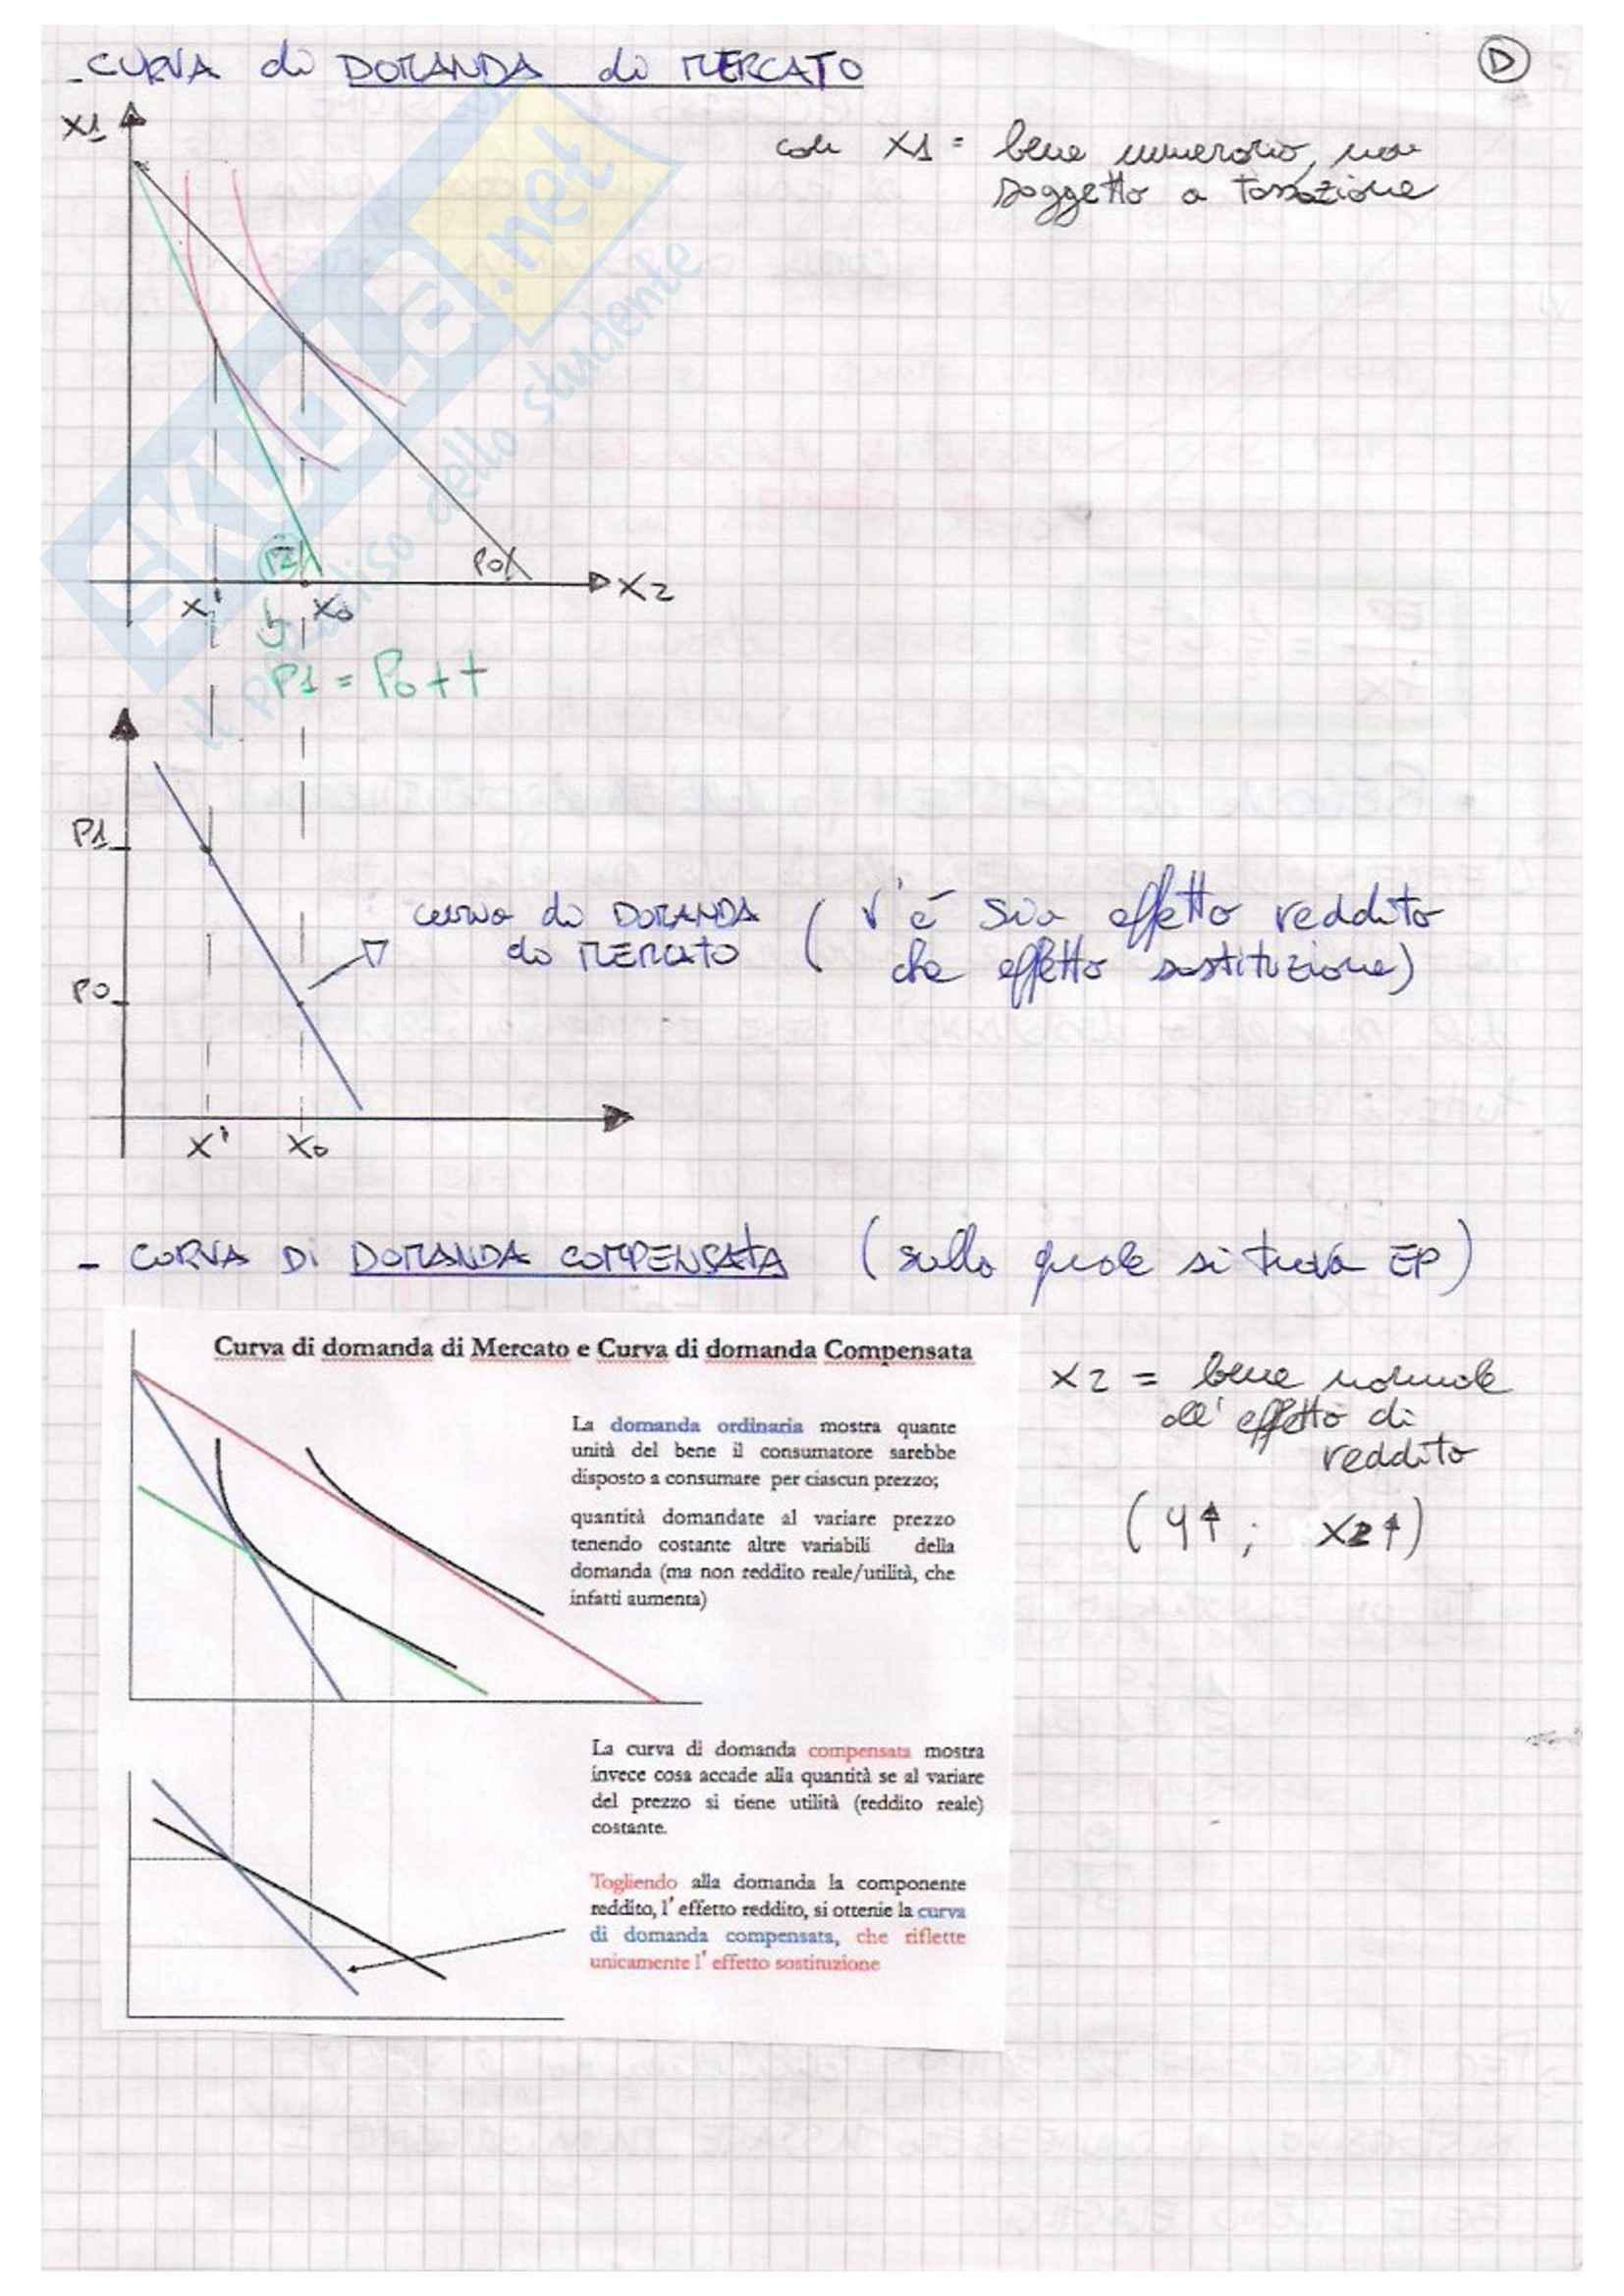 - CURVA di DOMANDA di MERCATO
D
X1
con X1 = bene numerario, non
soggetto a tassazione
SKUOLA.net
il paradiso dello studente
P0
X2
X' X0
P1 = P0 + t
P1
curva di DOMANDA
di MERCATO
( v'è sia effetto reddito
che effetto sostituzione)
P0
X' X0
- CURVA DI DOMANDA COMPENSATA (sulla quale si trova EP)
Curva di domanda di Mercato e Curva di domanda Compensata
X2 = bene normale
all'effetto di
reddito
(Y↑; X2↑)
La domanda ordinaria mostra quante
unità del bene il consumatore sarebbe
disposto a consumare per ciascun prezzo;
quantità domandate al variare prezzo
tenendo costante altre variabili della
domanda (ma non reddito reale/utilità, che
infatti aumenta)
La curva di domanda compensata mostra
invece cosa accade alla quantità se al variare
del prezzo si tiene utilità (reddito reale)
costante.
Togliendo alla domanda la componente
reddito, l' effetto reddito, si ottenie la curva
di domanda compensata, che riflette
unicamente l' effetto sostituzione